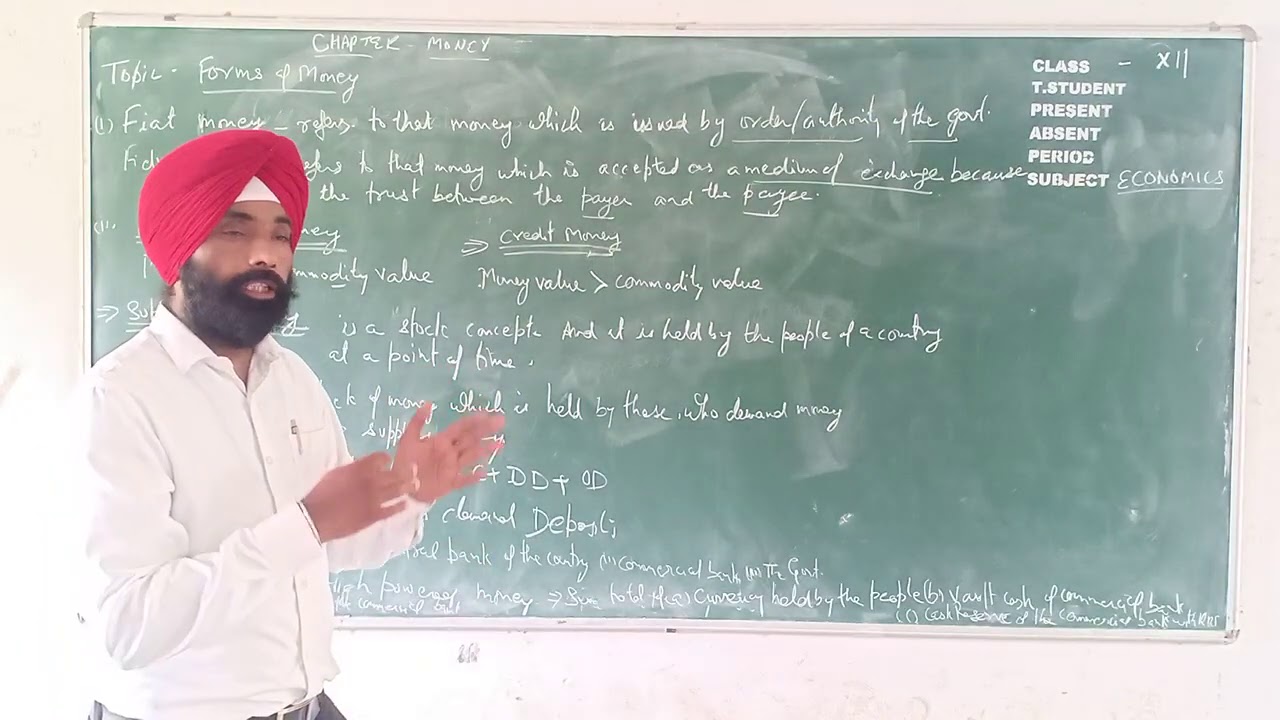 CHAPTER - MONEY
Topic - Forms of Money
(1) Fiat money - refers to that money which is issued by order/authority of the govt.
refers to that money which is accepted as a medium of exchange because
the trust between the payer and the payee.
Credit Money
commodity value
Money value > commodity value
is a stock concept. And it is held by the people of a country
at a point of time.
of money which is held by those, who demand money
C + DD + OD
demand Deposits
bank of the country (ii) commercial bank (iii) The Govt.
High powered money => Sum total of (a) currency held by the people (b) Vault cash of commercial bank
(c) Cash Reserve of the commercial bank with RBI
CLASS - XII
T.STUDENT
PRESENT
ABSENT
PERIOD
SUBJECT ECONOMICS